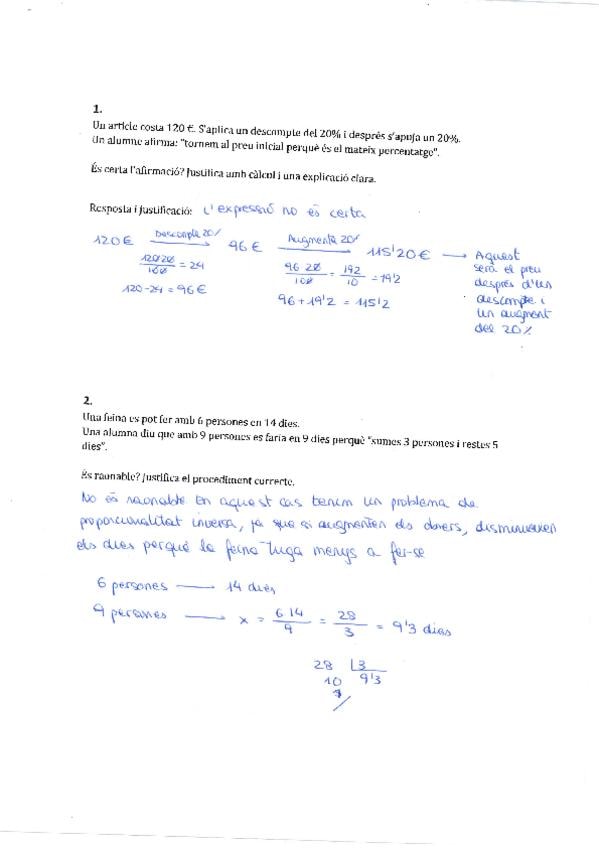 1.
Un article costa 120 €. S'aplica un descompte del 20% i després s'apuja un 20%.
Un alumne afirma: "tornem al preu inicial perquè és el mateix percentatge".
És certa l'afirmació? Justifica amb càlcul i una explicació clara.
Resposta i justificació: L'expressió no és certa
120€ Descompte 20% → 96€ Augmenta 20% → 115'20€ → Aquest
serà el preu
després d'un
descompte i
un augment
del 20%
120·20/100 = 24
120-24 = 96€
96·20/100 = 192/10 = 19'2
96+19'2 = 115'2
2.
Una feina es pot fer amb 6 persones en 14 dies.
Una alumna diu que amb 9 persones es faria en 9 dies perquè "sumes 3 persones i restes 5
dies".
És raonable? Justifica el procediment correcte.
No és raonable en aquest cas tenim un problema de
proporcionalitat inversa, ja que si augmenten els, disminueixen
els dies perquè la feina menys a fer-se
6 persones — 14 dies
9 persones → x = 6·14/9 = 28/3 = 9'3 dias
28 |3
10 9'3
1